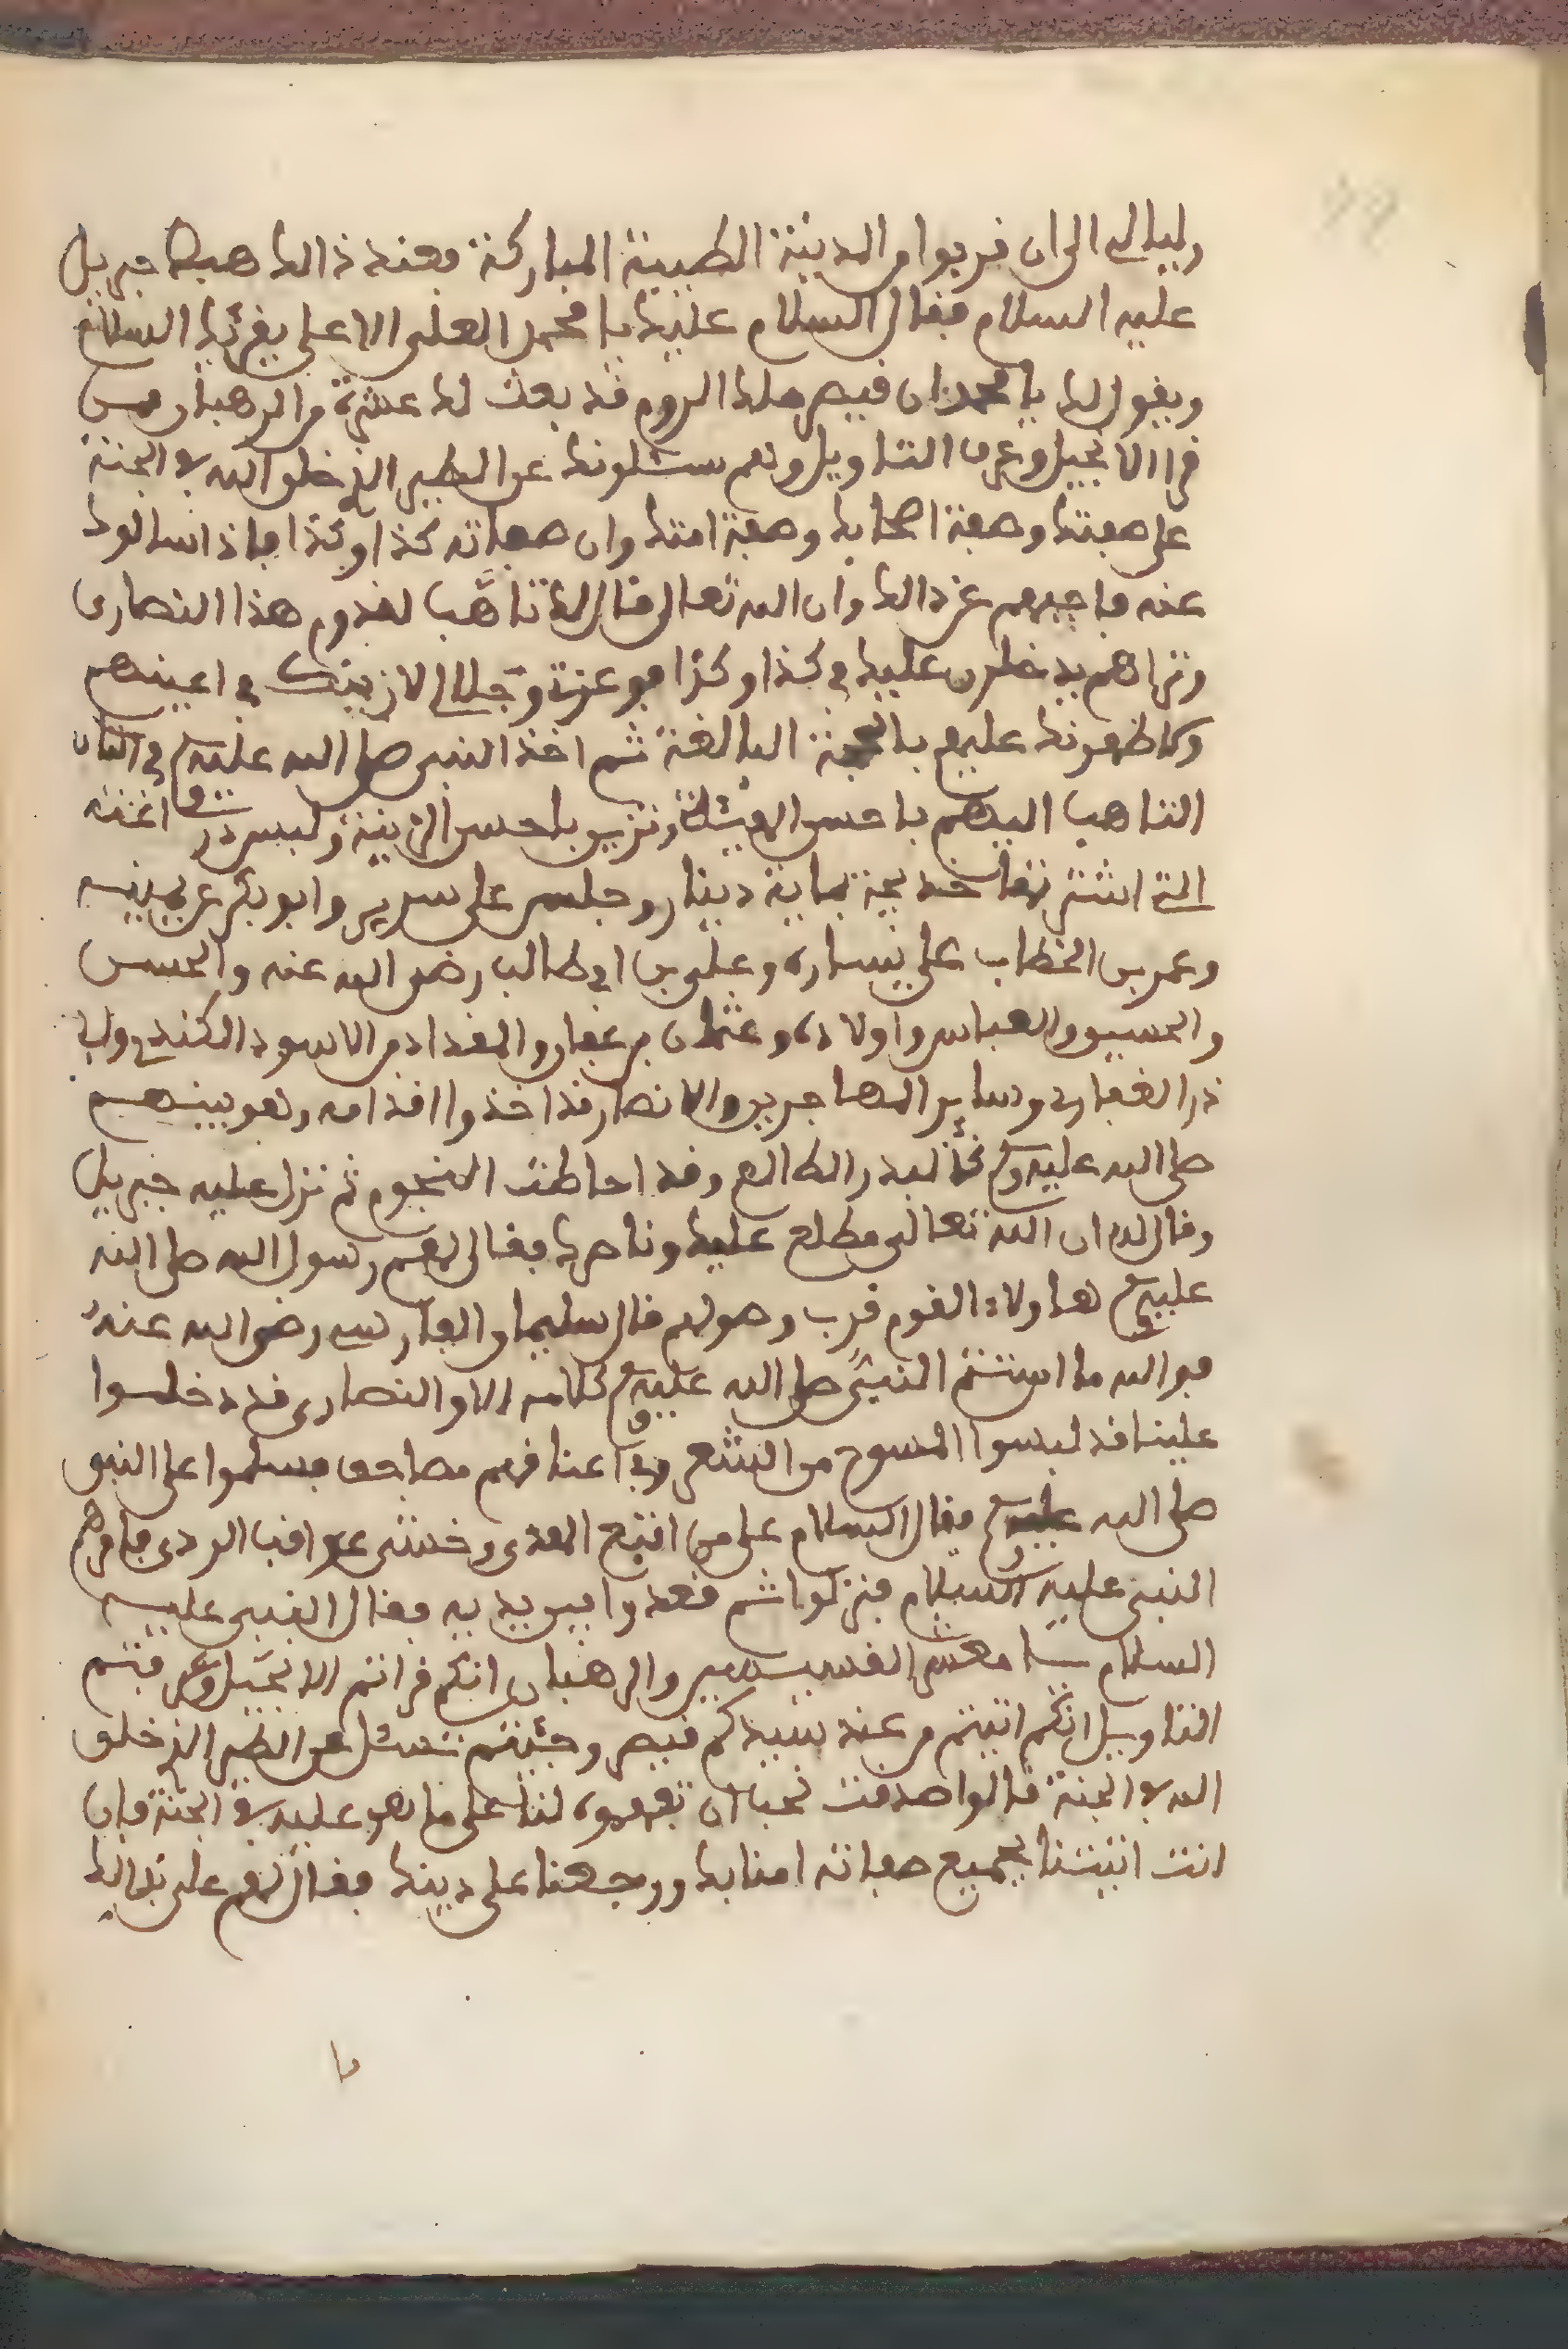 وليالي الى ان قربوا من المدينة الطيبة المباركة فعند ذالك هبط جبريل
عليه السلام فقال السلام عليك يا محمد العلي الاعلى يقرئك السلام
ويقول لك يا محمد ان قيصر ملك الروم قد بعث لك عشرة من الرهبان ممن
قرا الانجيل وعرف التاويل وهم يسئلونك عن الطير الذي خلق الله في الجنة
على صفتك وصفة اصحابك وصفة امتك وان صفاته كذا وكذا فاذا سالوك
عنه فاخبرهم عن ذالك وان الله تعالى قال لك تاهب لقدوم هذا النصارى
وتراهم يدخلون عليك في كذا وكذا فوعزتي وجلالي لازينك في اعينهم
ولاظهرنك عليهم بالحجة البالغة ثم اخذ النبي صلى الله عليه وسلم في
التاهب اليهم باحسن الهيئة وتزين باحسن الزينة ولبس
التي اشترتها خديجة بماية دينار وجلس على سرير وابو بكر عن يمينه
وعمر بن الخطاب على يساره وعلي بن ابي طالب رضي الله عنه والحسن
والحسين والعباس واولاده وعثمان بن عفان والمقداد بن الاسود الكندي وابا
ذر الغفاري وساير المهاجرين والانصار قد اخذوا اقدامه وهو بينهم
صلى الله عليه وسلم كالبدر الطالع وقد احاطت النجوم ثم نزل عليه جبريل
وقال له ان الله تعالى مطلع عليك وناصرك فقال لهم رسول الله صلى الله
عليه وسلم هاولاء القوم قرب وصولهم قال سليمان الفارسي رضي الله عنه
فوالله ما استتم النبي صلى الله عليه وسلم كلامه الا والنصارى قد دخلوا
علينا قد لبسوا المسوح من الشعر وفي اعناقهم مصاحف فسلموا على النبي
صلى الله عليه وسلم فقال السلام على من اتبع الهدى وخشى عواقب الردى فامرهم
النبي عليه السلام فنزلوا ثم قعدوا بين يديه فقال النبي عليه
السلام يا معشر القسيسين والرهبان انكم قراتم الانجيل وعرفتم
التاويل انكم اتيتم من عند سيدكم قيصر وجئتم تسئل عن الطير الذي خلق
الله في الجنة قالوا صدقت نحب ان تصفه لنا على ما هو عليه في الجنة فان
انت اتيتنا بجميع صفاته امنا بك ورجعنا على دينك فقال لهم على ذالك